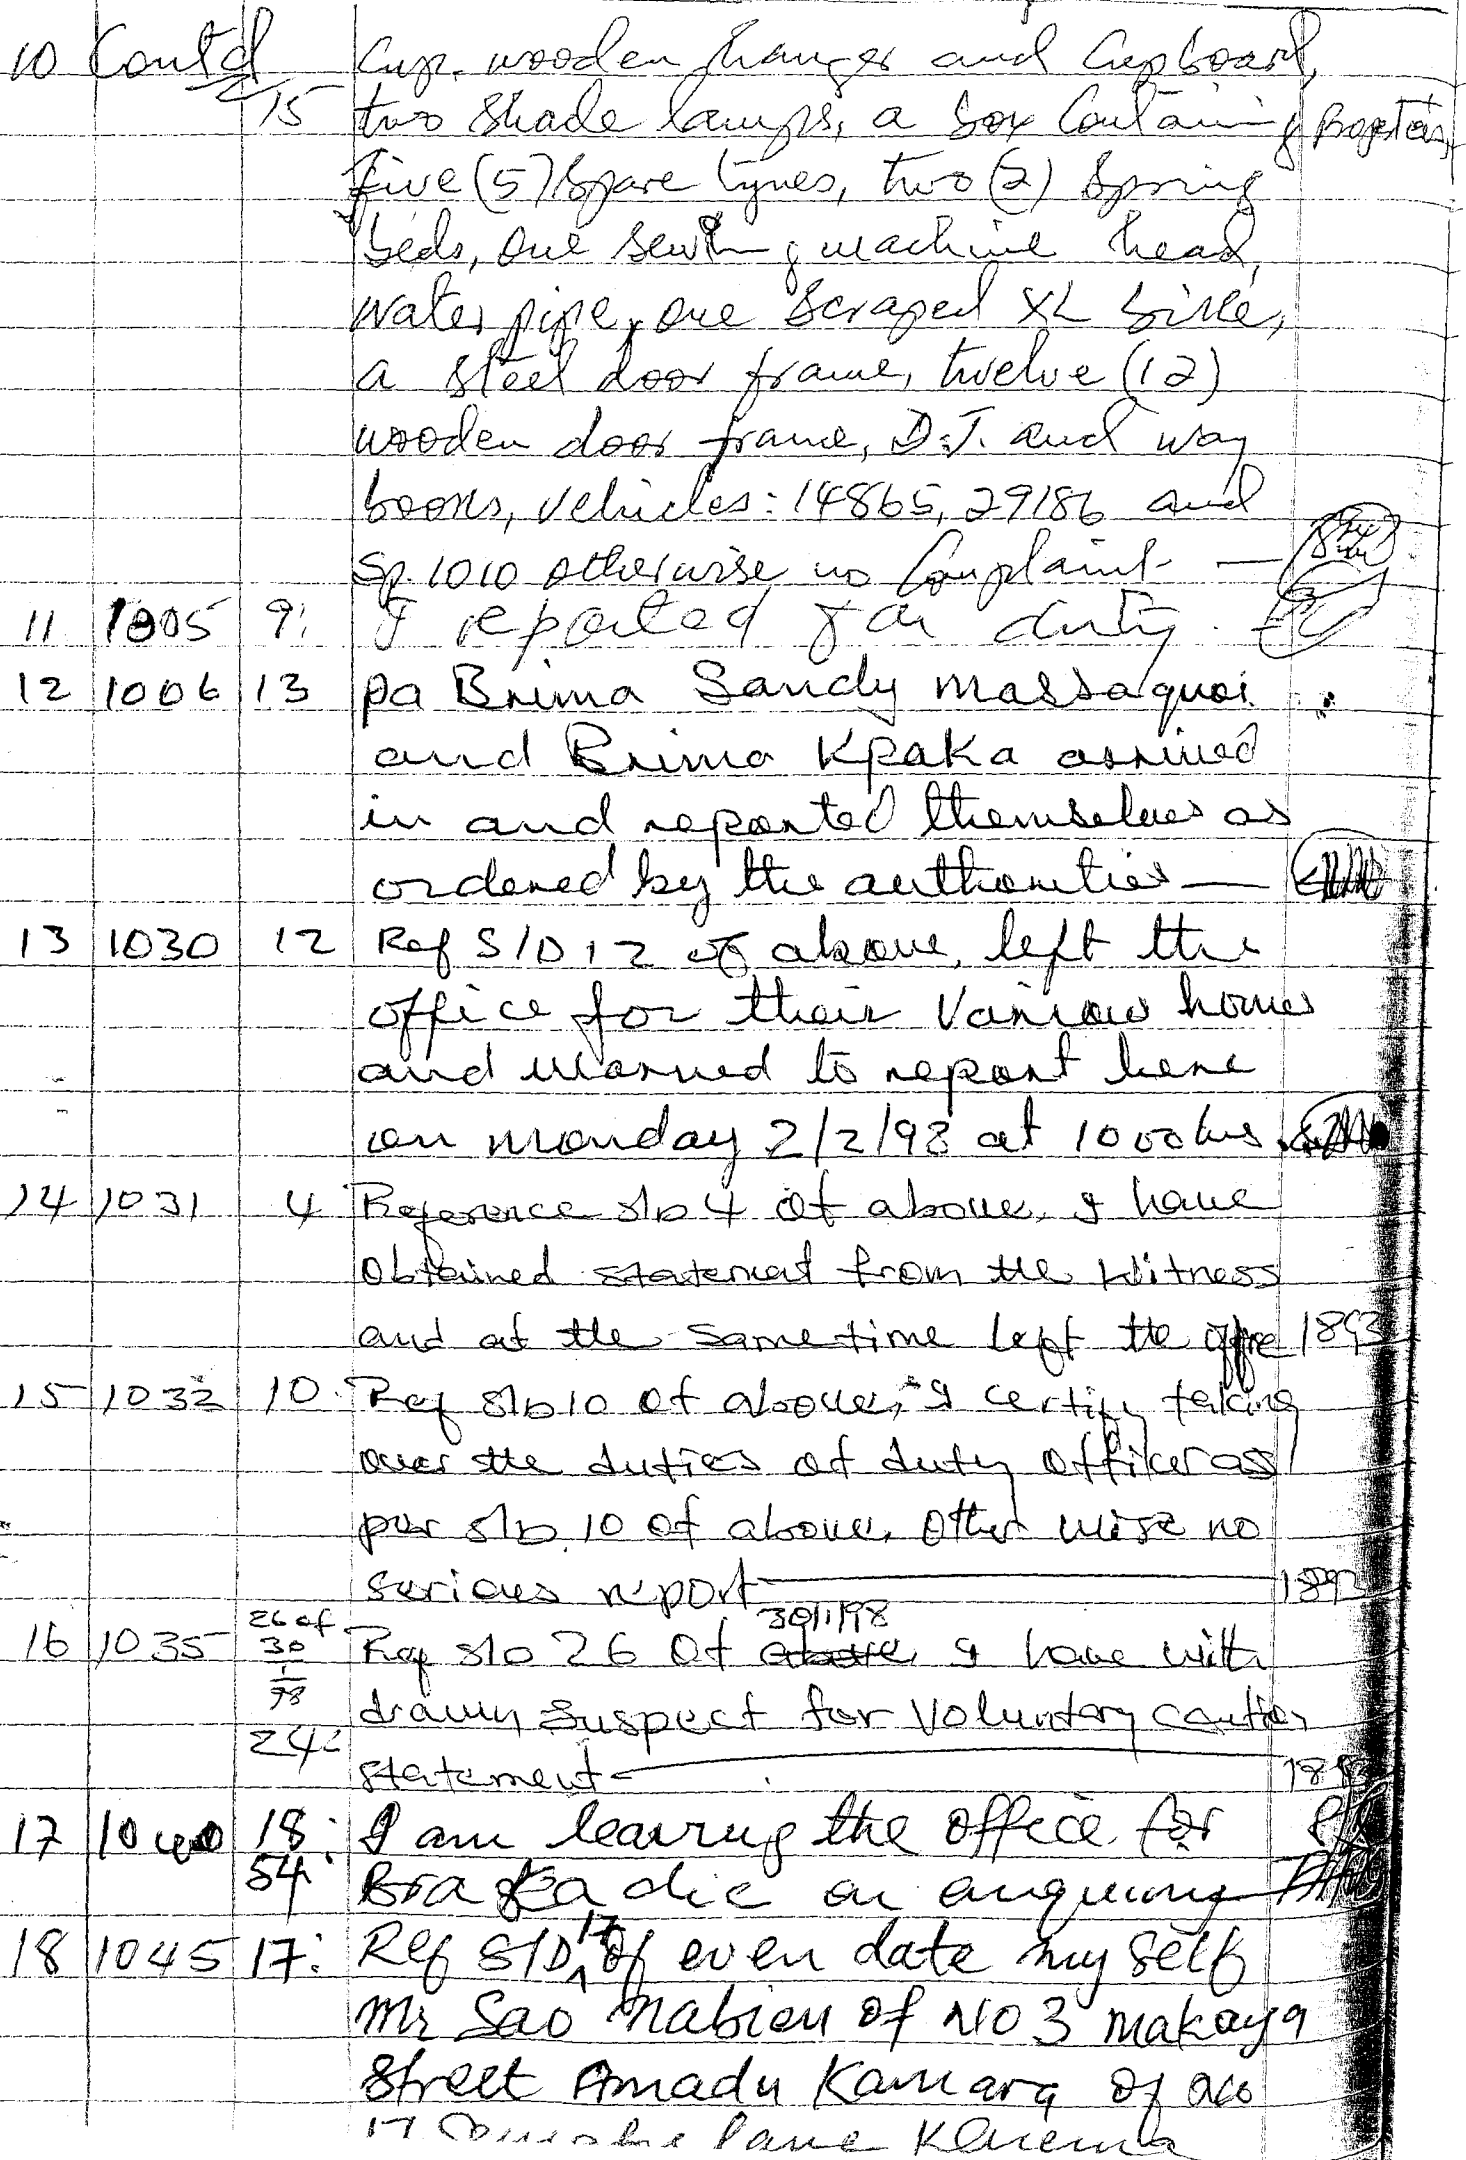 10 Contd Cup. wooden hanger and Cupboard,
15 two Shade lamps, a box Containing Properties
five (5) Spare tyres, two (2) Spring
beds, one sewing machine head,
water pipe, one Scraped XL bike,
a steel door frame, twelve (12)
wooden door frame, D.J. and way
books, vehicles: 14865, 29186 and
Sp. 1010 otherwise no Complaint —
11 1005 9: I reported for duty.
12 1006 13 pa Brima Sandy Massaquoi
and Brima Kpaka arrived
in and reported themselves as
ordered by the authorities —
13 1030 12 Ref S/D 12 of above, left the
office for their various homes
and warned to report here
on monday 2/2/98 at 1000hrs.
14 1031 4 Reference s/D 4 of above, I have
obtained statement from the witness
and at the same time left the office 1893
15 1032 10 Ref s/D 10 of above, I certify taking
over the duties of duty officer as
per s/D 10 of above. Other wise no
serious report 1893
16 1035 26 of 30/1/98 Ref s/D 26 of 30/1/98 I have with
drawn suspect for voluntary caution
24: statement 1893
17 1040 18: I am leaving the office for
54: on enquiry
18 1045 17: Ref S/D 17 of even date my self
Mr Sao Nabieu of NO 3 makaya
Street Amadu Kamara of no
17 lane Kenema